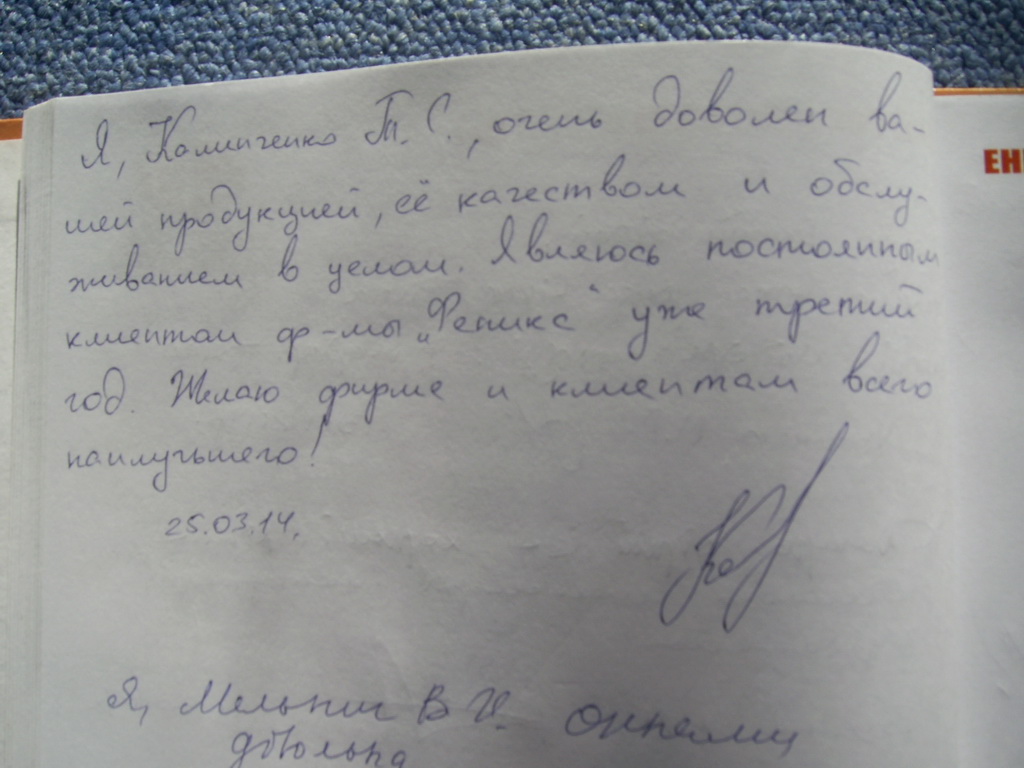 Я, Калиниченко Т. С., очень доволен ва-
шей продукцией, её качеством и обслу-
живанием в целом. Являюсь постоянным
клиентом ф-мы „Феникс“ уже третий
год. Желаю фирме и клиентам всего
наилучшего!
25.03.14.
Я, Мельник В И.
довольна
ЕН